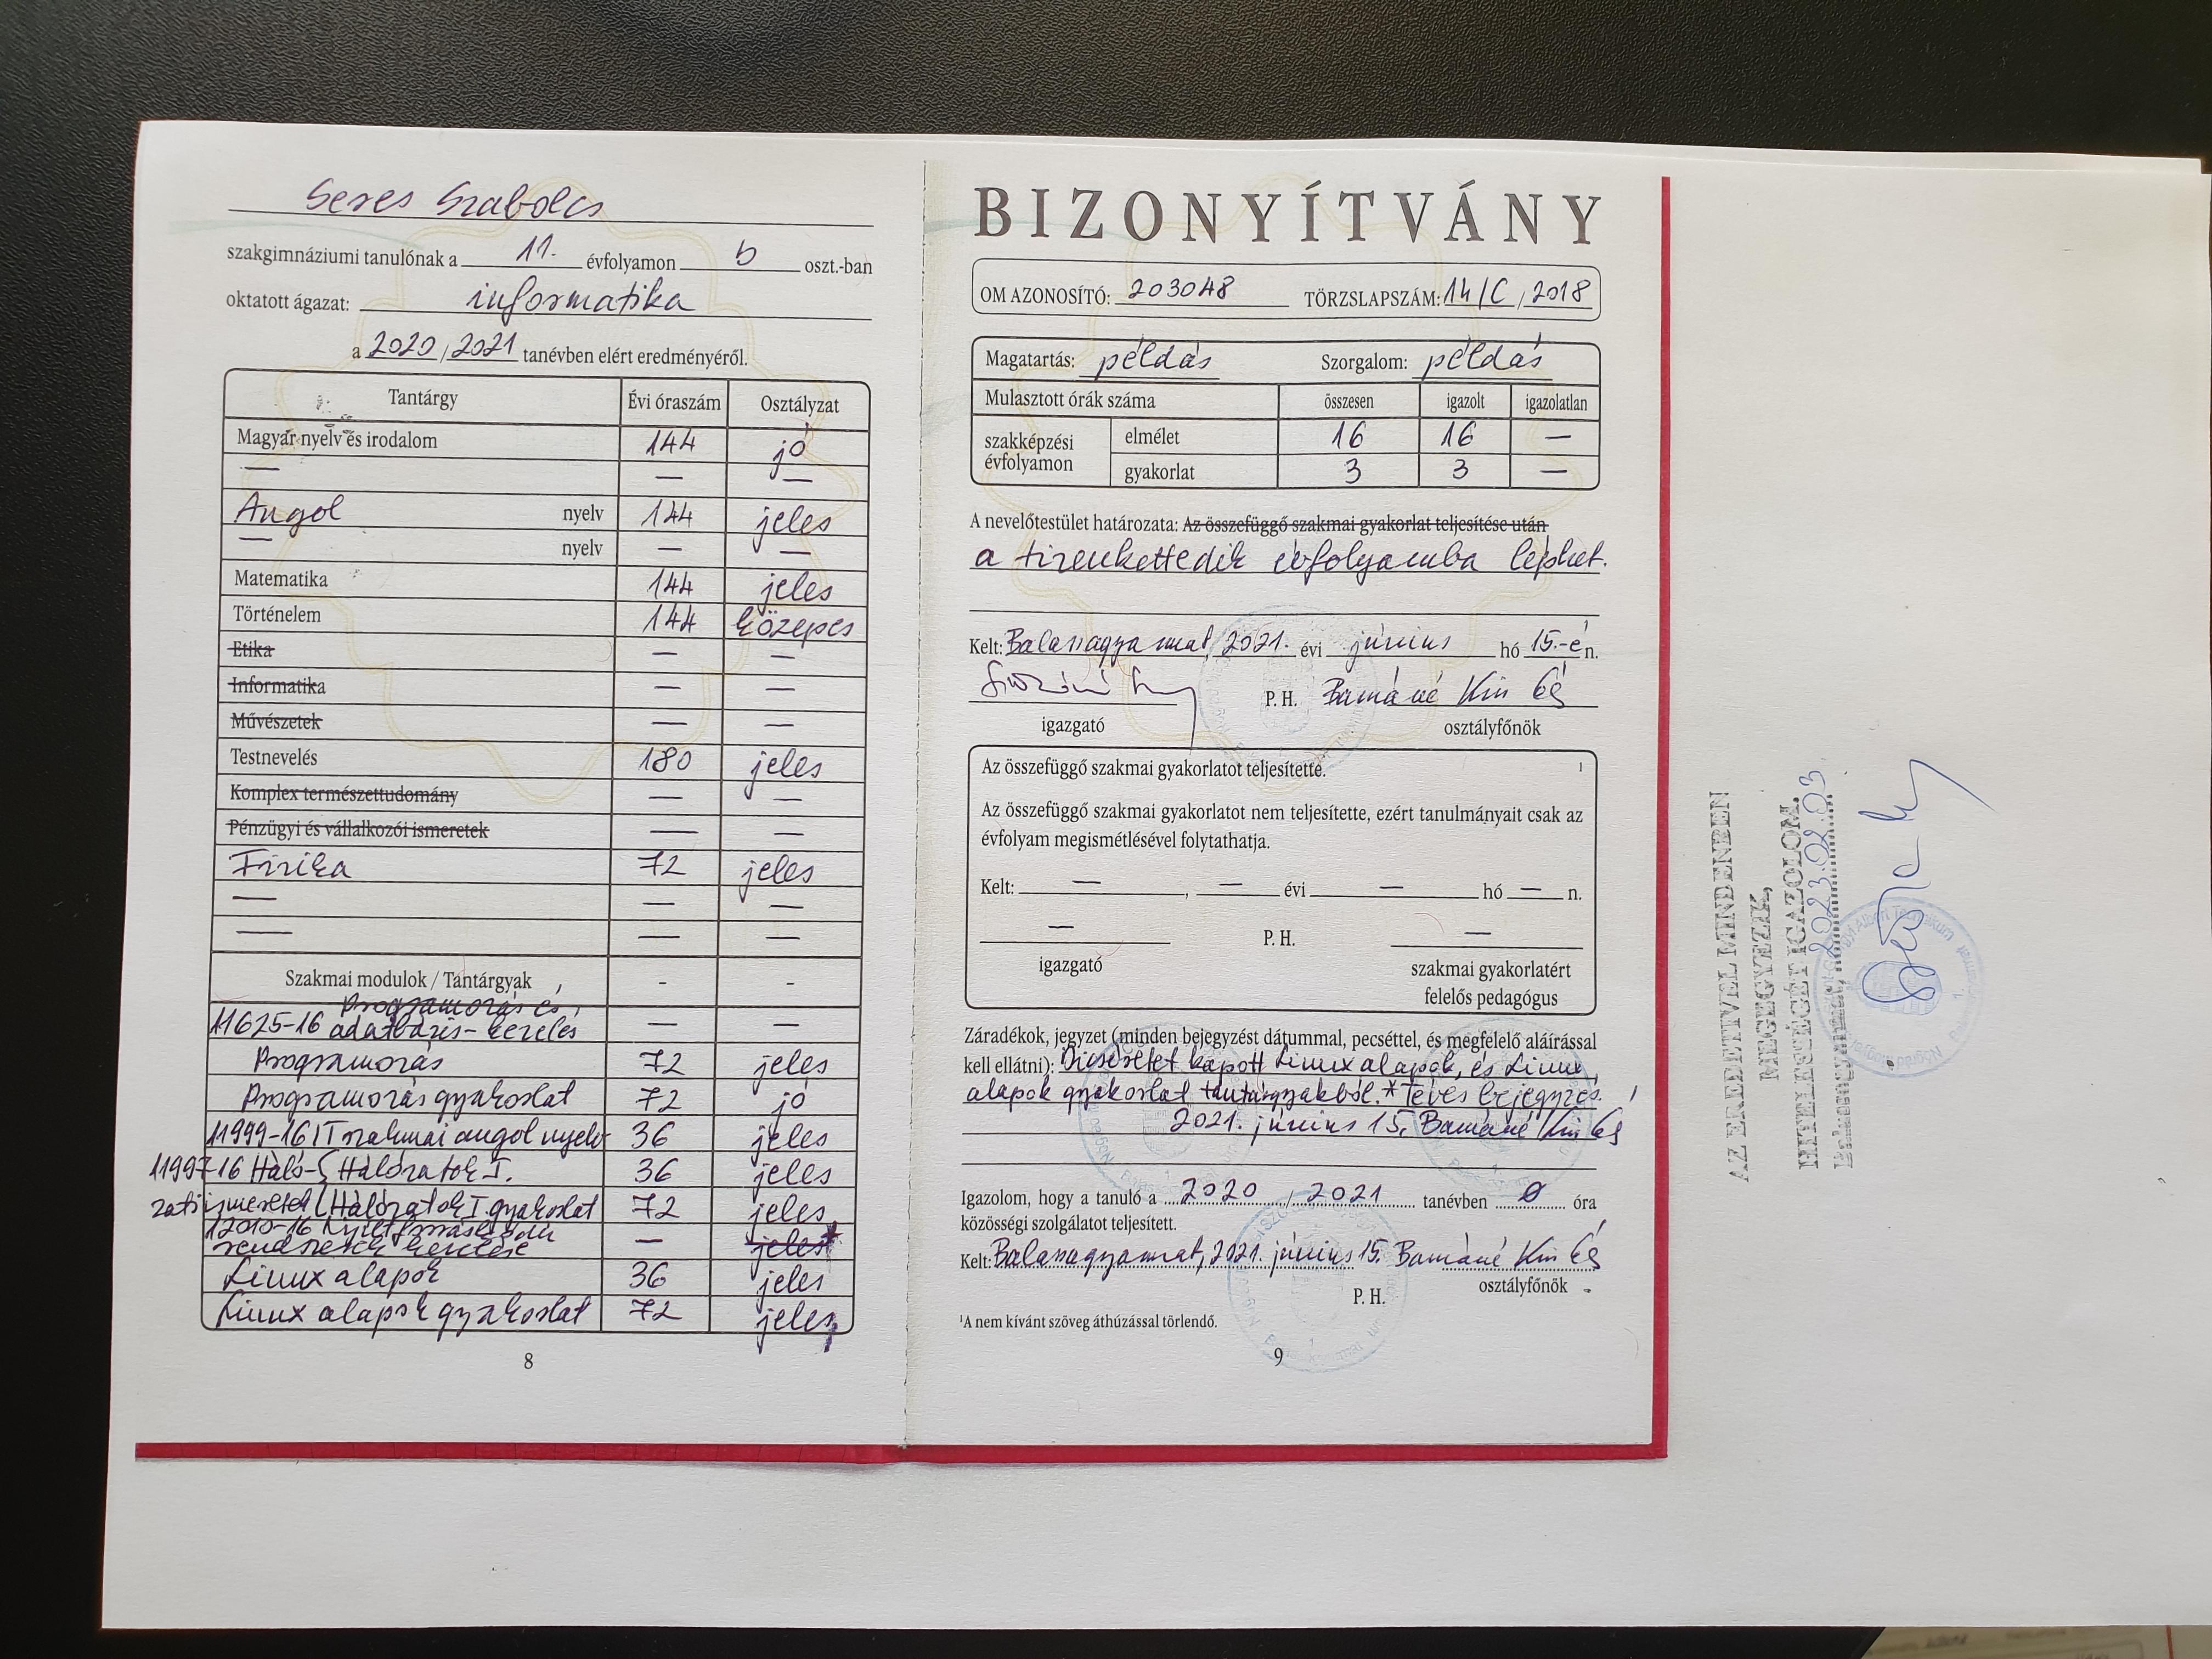 Seres Szabolcs
szakgimnáziumi tanulónak a 11. évfolyamon b oszt.-ban
oktatott ágazat: informatika
a 2020/2021 tanévben elért eredményéről.
Tantárgy Évi óraszám Osztályzat
Magyar nyelv és irodalom 144 jó
— — —
Angol nyelv 144 jeles
— nyelv — —
Matematika 144 jeles
Történelem 144 közepes
Etika — —
Informatika — —
Művészetek — —
Testnevelés 180 jeles
Komplex természettudomány — —
Pénzügyi és vállalkozói ismeretek — —
Fizika 72 jeles
— — —
— — —
Szakmai modulok / Tantárgyak - -
Programozás és
11625-16 adatbázis-kezelés — —
Programozás 72 jeles
Programozás gyakorlat 72 jó
11999-16 IT szakmai angol nyelv 36 jeles
11997-16 Háló- Hálózatok I. 36 jeles
zati ismeretek Hálózatok I. gyakorlat 72 jeles
12010-16 Nyílt forráskódú
rendszerek kezelése — jeles*
Linux alapok 36 jeles
Linux alapok gyakorlat 72 jeles
8
BIZONYÍTVÁNY
OM AZONOSÍTÓ: 203048 TÖRZSLAPSZÁM: 14/C/2018
Magatartás: példás Szorgalom: példás
Mulasztott órák száma összesen igazolt igazolatlan
szakképzési évfolyamon elmélet 16 16 —
gyakorlat 3 3 —
A nevelőtestület határozata: Az összefüggő szakmai gyakorlat teljesítése után
a tizenkettedik évfolyamba léphet.
Kelt: Balassagyarmat, 2021. évi június hó 15.-én.
P. H.
igazgató osztályfőnök
Az összefüggő szakmai gyakorlatot teljesítette. 1
Az összefüggő szakmai gyakorlatot nem teljesítette, ezért tanulmányait csak az
évfolyam megismétlésével folytathatja.
Kelt: —, — évi — hó — n.
— P. H. —
igazgató szakmai gyakorlatért
felelős pedagógus
Záradékok, jegyzet (minden bejegyzést dátummal, pecséttel, és megfelelő aláírással
kell ellátni): Dicséretet kapott Linux alapok, és Linux
alapok gyakorlat tantárgyakból. * Téves bejegyzés.
2021. június 15.
Igazolom, hogy a tanuló a 2020 / 2021 tanévben 0 óra
közösségi szolgálatot teljesített.
Kelt: Balassagyarmat, 2021. június 15.
P. H. osztályfőnök
¹A nem kívánt szöveg áthúzással törlendő.
9
AZ EREDETIVEL MINDENBEN
MEGEGYEZIK,
HITELESSÉGÉT IGAZOLOM.
Balassagyarmat, 2023.02.03.